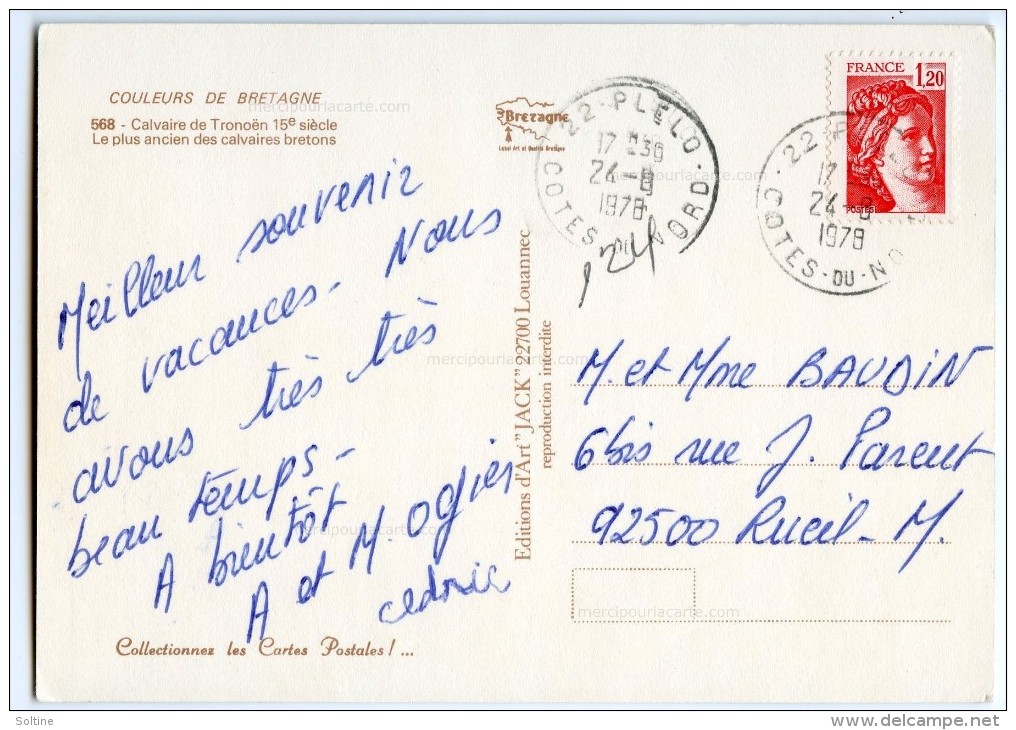 COULEURS DE BRETAGNE
568 - Calvaire de Tronoën 15e siècle
Le plus ancien des calvaires bretons
Meilleur souvenir
de vacances - Nous
avons très très
beau temps -
A bientôt
A et M. Ogier
cedric
Collectionnez les Cartes Postales ! ...
Bretagne
Label Art et Qualité Bretagne
Editions d'Art "JACK" 22700 Louannec
reproduction interdite
22 - PLELO
17 H 30
24 - 8
1978
COTES - DU - NORD
24
22 - P
17
24 - 8
1978
COTES - DU - NO
FRANCE 1,20
POSTES
M. et Mme BAUDIN
6 bis rue J. Parent
92500 Rueil - M.
mercipourlacarte.com
mercipourlacarte.com
mercipourlacarte.com
mercipourlacarte.com
mercipourlacarte.com
mercipourlacarte.com
Soltine
www.delcampe.net